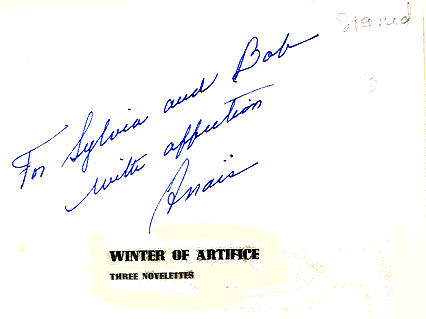 Signed
For Sylvia and Bob
with affection
Anaïs
WINTER OF ARTIFICE
THREE NOVELETTES